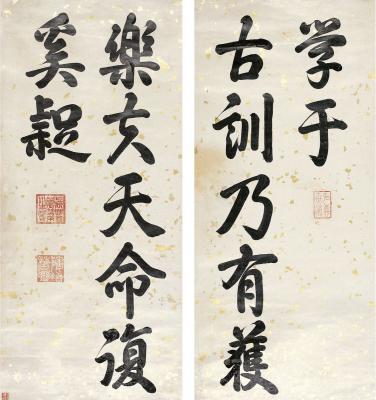 学于
古訓乃有獲
樂夫天命復
奚疑